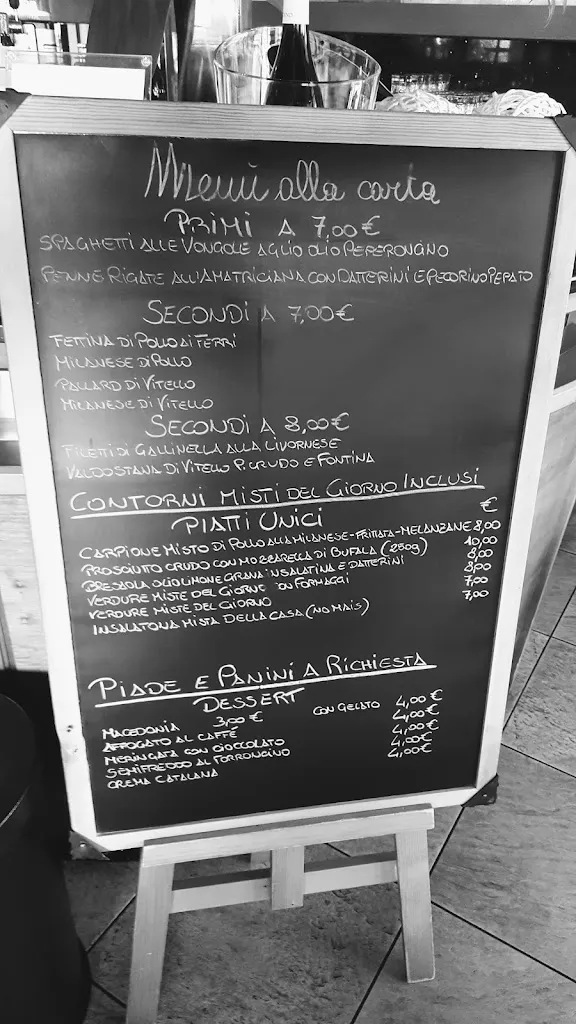 Menù alla carta
PRIMI A 7,00 €
SPAGHETTI ALLE VONGOLE AGLIO OLIO PEPERONCINO
PENNE RIGATE ALL'AMATRICIANA CON DATTERINI E PECORINO PEPATO
SECONDI A 7,00 €
FETTINA DI POLLO AI FERRI
MILANESE DI POLLO
PALLARD DI VITELLO
MILANESE DI VITELLO
SECONDI A 8,00 €
FILETTI DI GALLINELLA ALLA LIVORNESE
VALDOSTANA DI VITELLO P. CRUDO E FONTINA
CONTORNI MISTI DEL GIORNO INCLUSI
PIATTI UNICI €
CARPIONE MISTO DI POLLO ALLA MILANESE-FRITTATA-MELANZANE 8,00
PROSCIUTTO CRUDO CON MOZZARELLA DI BUFALA (250g) 10,00
BRESAOLA OLIO LIMONE GRANA INSALATINA E DATTERINI 8,00
VERDURE MISTE DEL GIORNO CON FORMAGGI 8,00
VERDURE MISTE DEL GIORNO 7,00
INSALATONA MISTA DELLA CASA (NO MAIS) 7,00
PIADE E PANINI A RICHIESTA
DESSERT
MACEDONIA 3,00 € CON GELATO 4,00 €
AFFOGATO AL CAFFÈ 4,00 €
MERINGATA CON CIOCCOLATO 4,00 €
SEMIFREDDO AL TORRONCINO 4,00 €
CREMA CATALANA 4,00 €